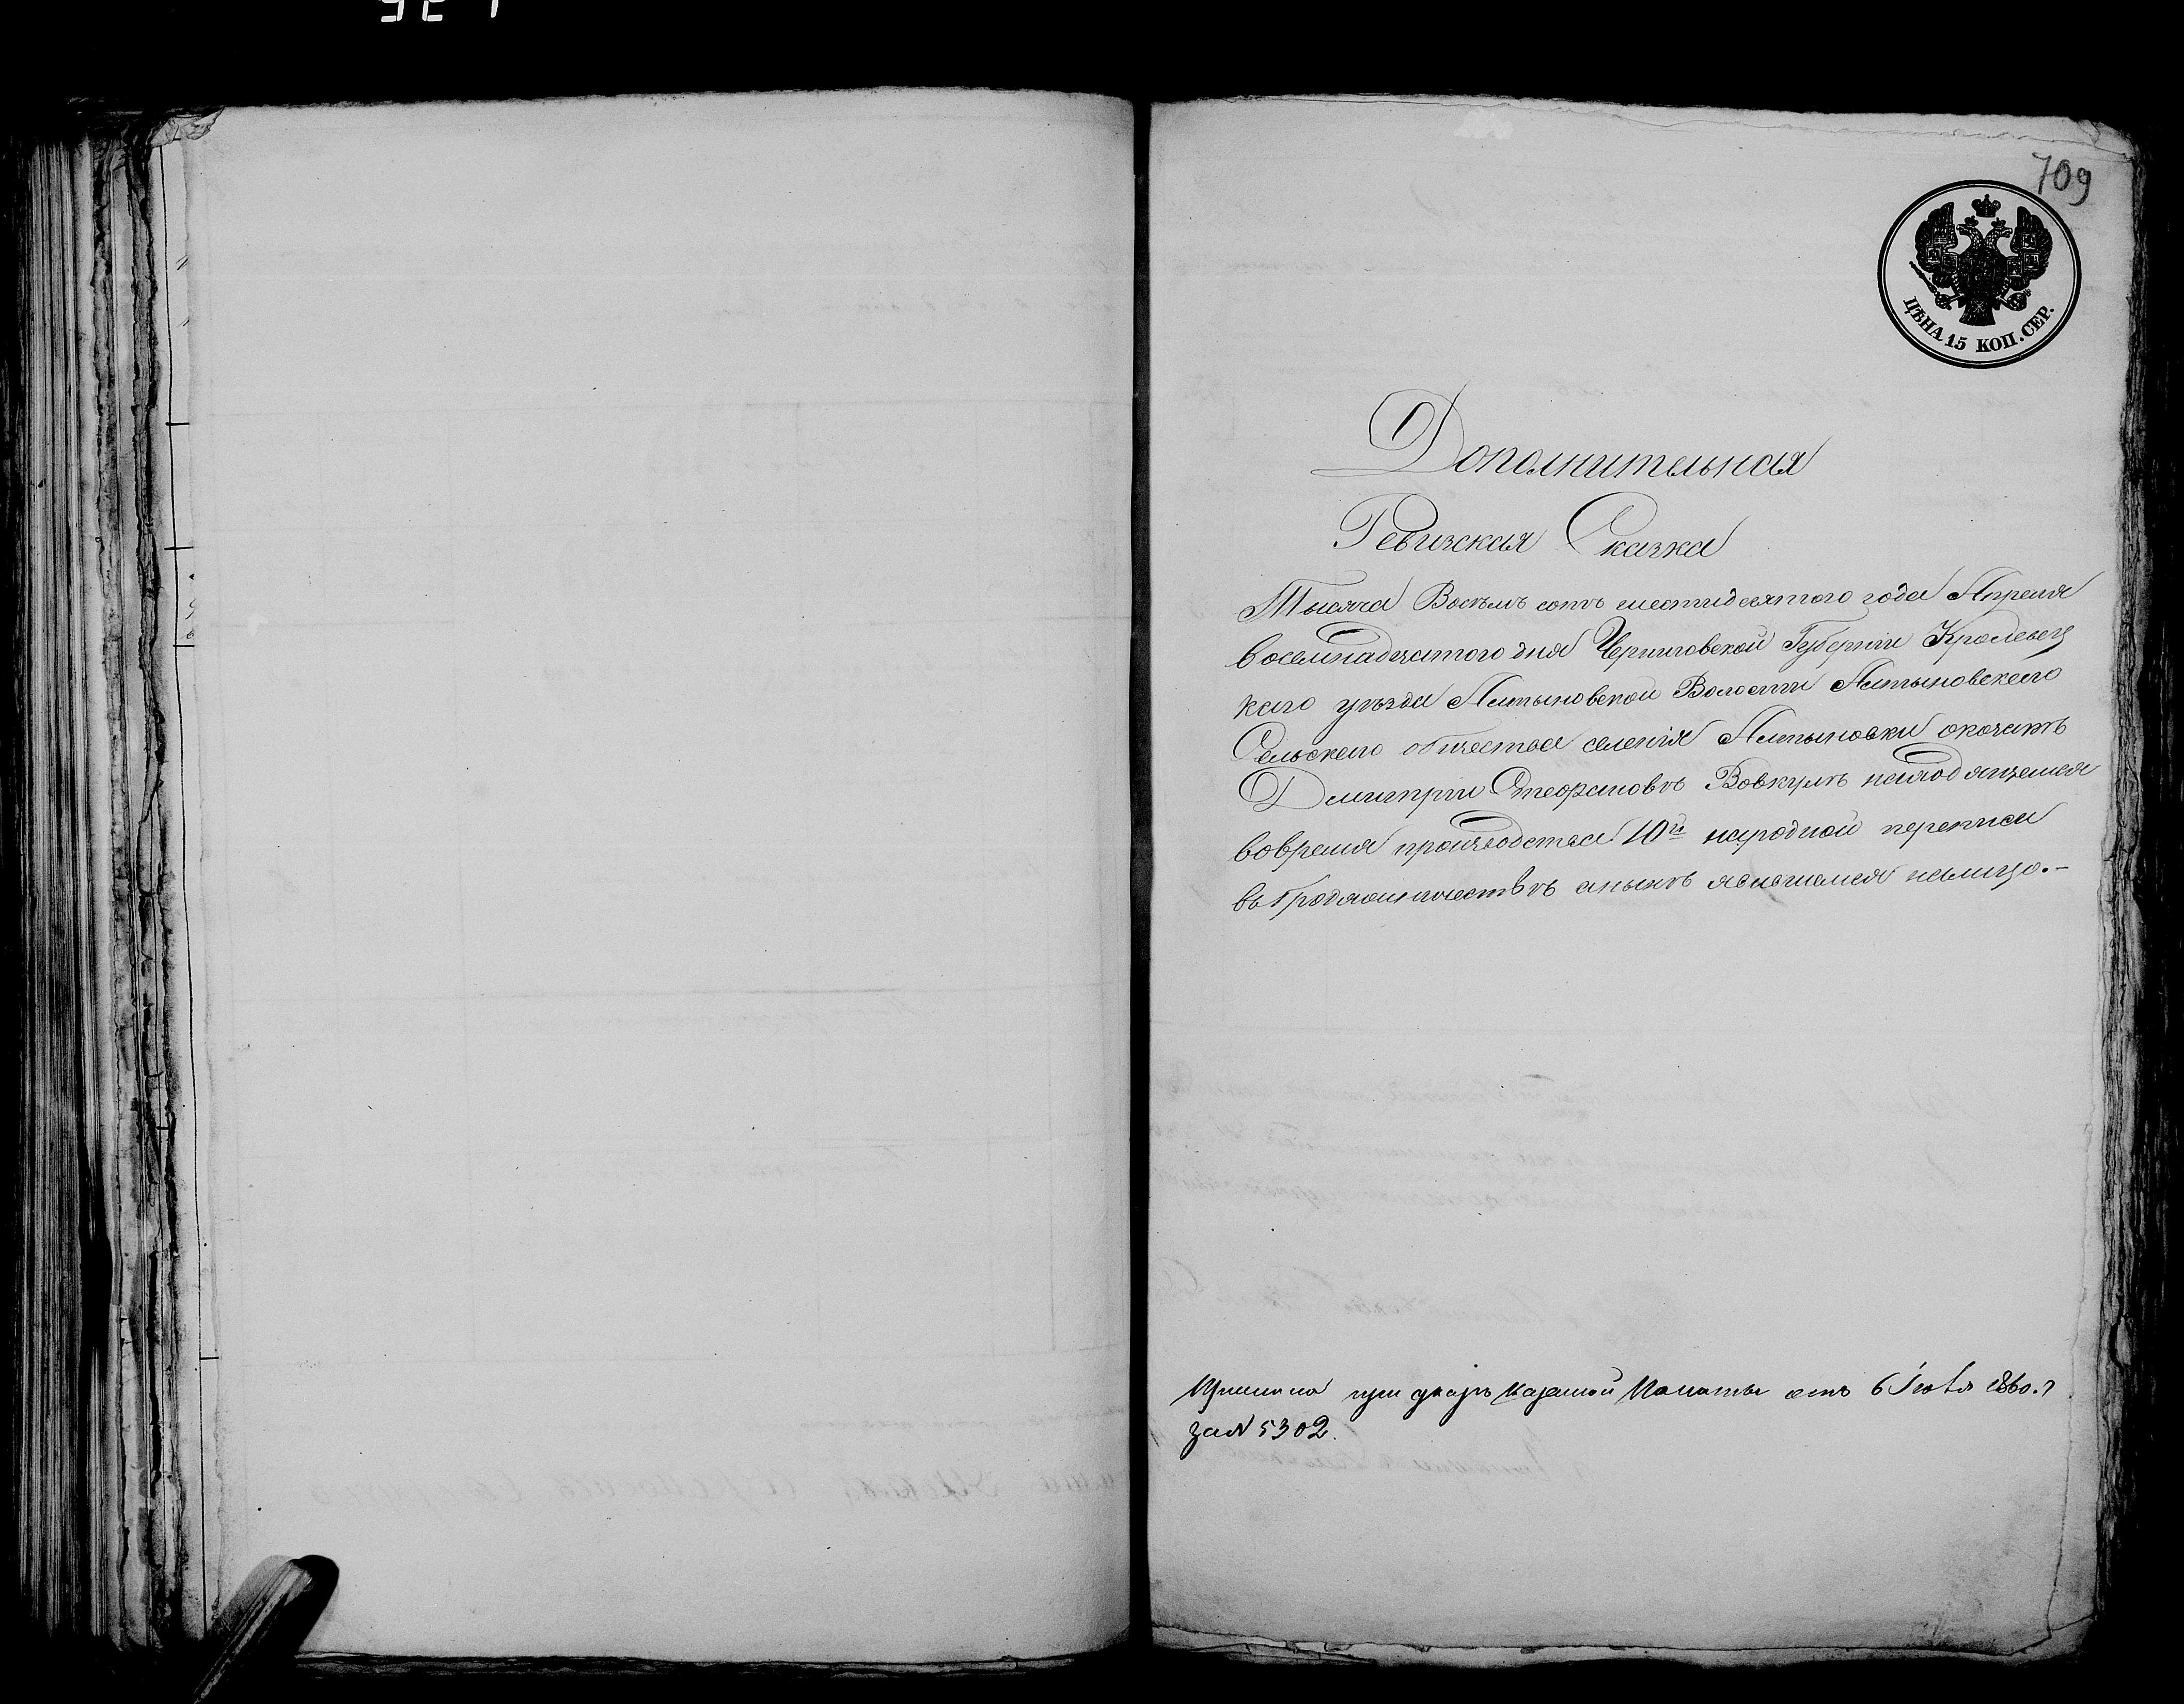 709
ЦѢНА 15 КОП. СЕР.
Дополнительная
Ревизская Сказка
Тысяча Восѣмъ сотъ шестидесятого года Апреля
восемнадцатого дня Черниговской Губерніи Кролевец
каго уѣзда Алтыновской Волости Алтыновскаго
Сельскаго общества селенія Алтыновки
Дмитріи Стефановѣ Вовкулѣ находящемся
вовремя производства 10й народной переписи
въ бродяжничествѣ анынѣ явившемся налицо.-
при указѣ Казенной Палаты отъ 6 Іюля 1860.г
за N 5302.